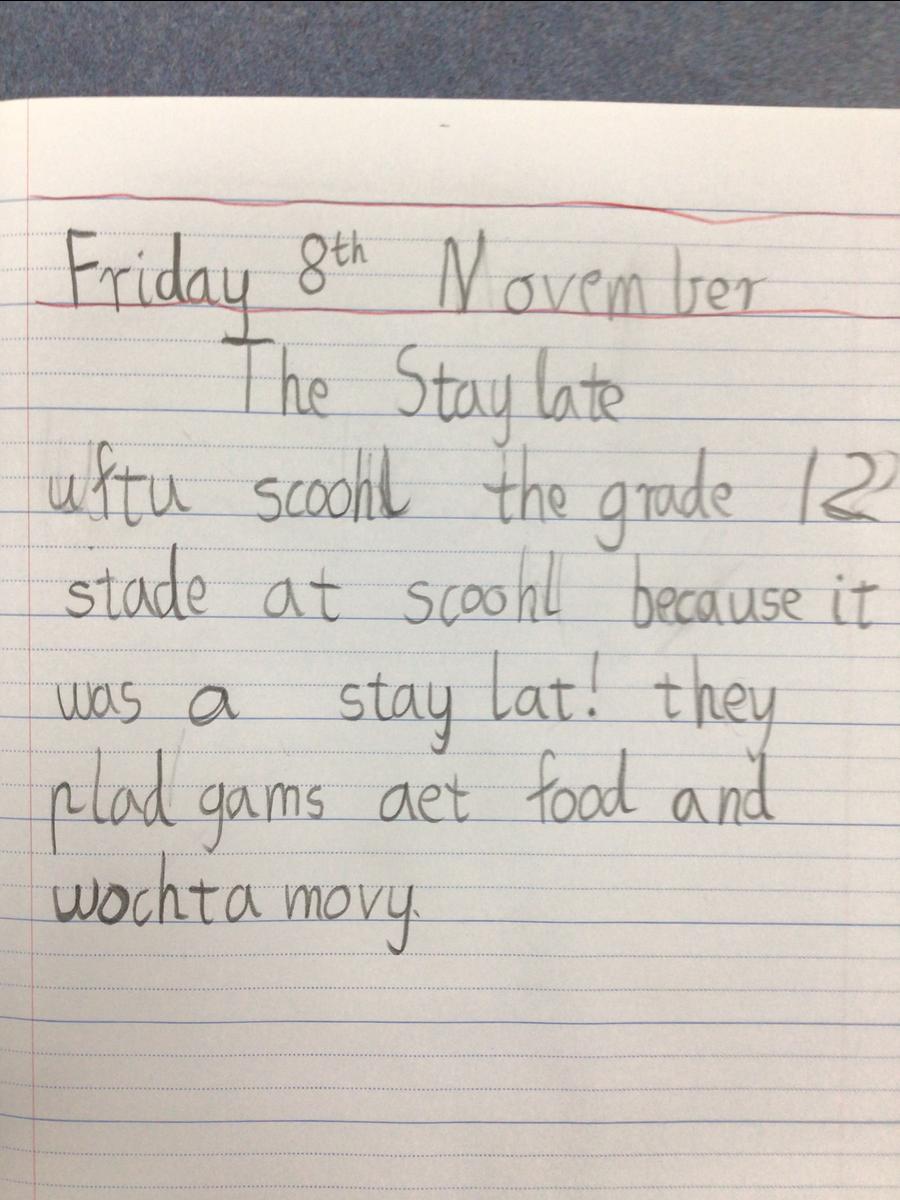 Friday 8th November
The Stay late
uftu scoohl the grade 12
stade at scoohl because it
was a stay lat! they
plad gams aet food and
wochta movy.